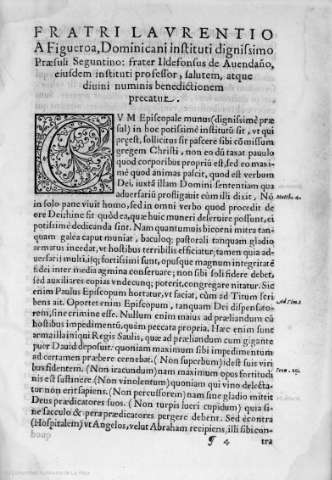 FRATRI LAVRENTIO
A Figueroa, Dominicani instituti dignissimo
Præsuli Seguntino: frater Ildefonsus de Auendaño,
eiusdem instituti professor, salutem, atque
diuini numinis benedictionem
precatur.
CVM Episcopale munus (dignissimè præ
sul) in hoc potissimè institutũ sit, vt qui
præest, sollicitus sit pascere sibi cõmissum
gregem Christi, non eo dũ taxat pauulo
quod corporibus propriũ est, sed eo maxi-
mè quod animas pascit, quod est verbum
Dei, iuxtà illam Domini sententiam qua
aduersariũ profligauit cùm illi dixit, Nõ
in solo pane viuit homo, sed in omni verbo quod procedit de
ore Dei: hinc sit quòd ea, quæ huic muneri deseruire possunt, ei
potissimè dicanda sint. Nam quantumuis bicorni mitra tan-
quam galea caput muniat, baculoq; pastorali tanquam gladio
armatus incedat, vt hostibus terribilis efficiatur, tamen quia ad-
uersarij multi, ijq; fortissimi sunt, opusque magnum integritatẽ
fidei inter media agmina conseruare; non sibi soli fidere debet,
sed auxiliares copias vndecunq; poterit, congregare nitatur. Sic
enim Paulus Episcopum hortatur, vt faciat, cùm ad Titum scri
bens ait. Oportet enim Episcopum, tanquam Dei dispensato-
rem, sine crimine esse. Nullum enim maius ad præliandum cũ
hostibus impedimentũ, quàm peccata propria. Hæc enim sunt
arma illa iniqui Regis Saulis, quæ ad præliandum cum gigante
puer Dauid deposuit: quoniam maximum sibi impedimentum
ad certamen præbere cernebat. (Non superbum) idest suis viri
bus fidentem. (Non iracundum) nam maximum opus fortitudi
nis est sustinere. (Non vinolentum) quoniam qui vino delecta-
tur non erit sapiens. (Non percussorem) nam sine gladio mittit
Deus prædicatores suos. (Non turpis lucri cupidum) quia si-
ne sacculo & pera prædicatores pergere debent. Sed econtra
(Hospitalem) vt Angelos, velut Abraham recipiens, illi sibi con-
¶ 4
tra
Matth. 4.
Ad Tim. 1